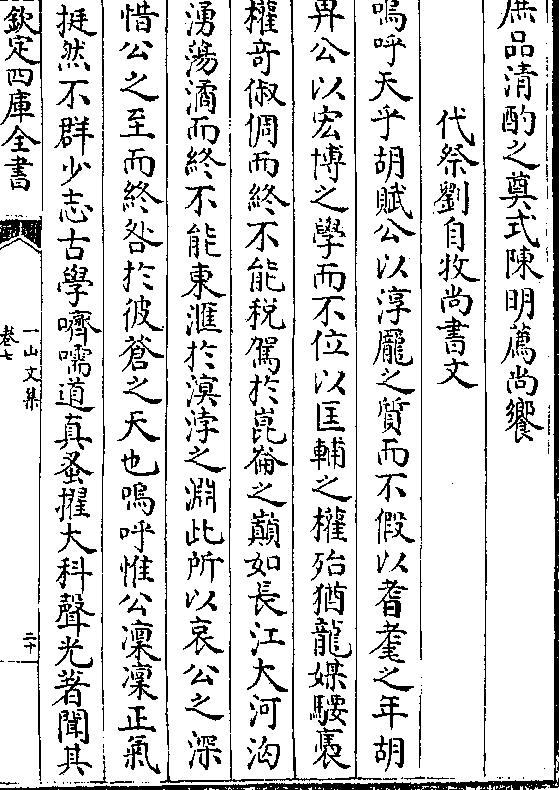 庶品清酌之奠式陳明薦尚饗
代祭劉自牧尚書文
嗚呼天乎胡賦公以淳龎之質而不假以耆耄之年胡
畀公以宏博之學而不位以匡輔之權殆猶龍媒騕褭
權奇俶倜而終不能稅駕於崑崙之巔如長江大河洶
湧蕩潏而終不能東滙於溟渤之淵此所以哀公之深
惜公之至而終咎於彼蒼之天也嗚呼惟公凜凜正氣
挺然不群少志古學嚌嚅道真蚤擢大科聲光著聞其
欽定四庫全書
一山文集
卷七
二十